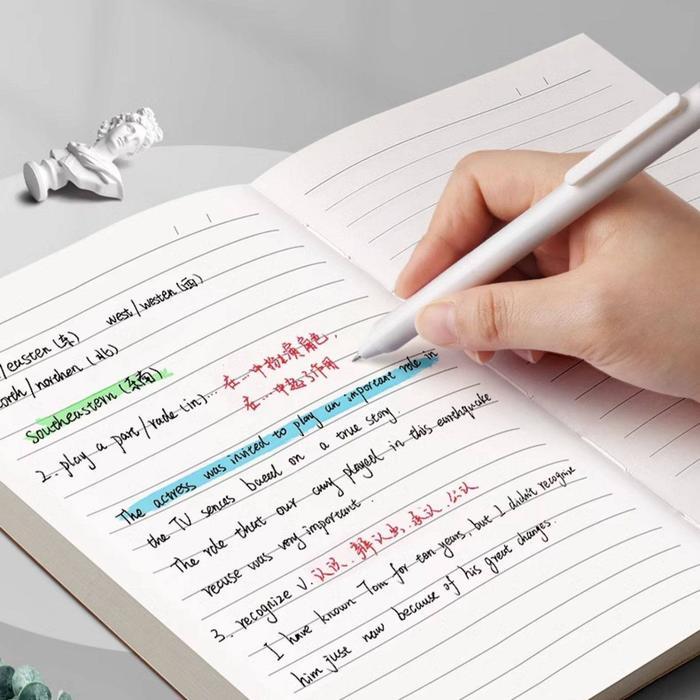 /eastern (东) west/western (西)
north/northen (北)
southeastern (东南)
在…中扮演角色,
2. play a part/role (in)… 在…中起了作用
The actress was invited to play an important role in
the TV series based on a true story.
The role that our army played in this earthquake
rescue was very important.
3. recognize v. 认识. 辨认出. 承认. 公认
I have known Tom for ten years, but I didn't recognize
him just now because of his great changes.